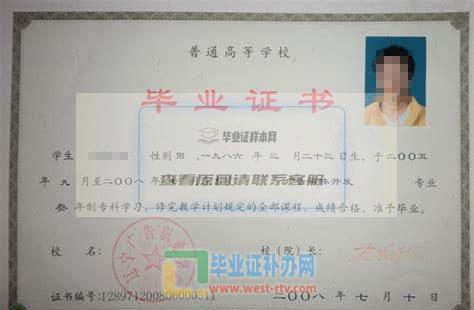 普通高等学校
毕业证书
毕业证样本网
学生 性别 男，一九八六 年 三 月 二十三 日生，于 二〇〇五
年 九 月至 二〇〇八 年
查看原图请联系客服
开发 专业
叁 年制专科学习，修完教学计划规定的全部课程，成绩合格，准予毕业。
校 名： 校（院）长：
辽宁广告职业
毕业证补办网
www.west-rtv.com
证书编号: 二〇〇八 年 七 月 十 日